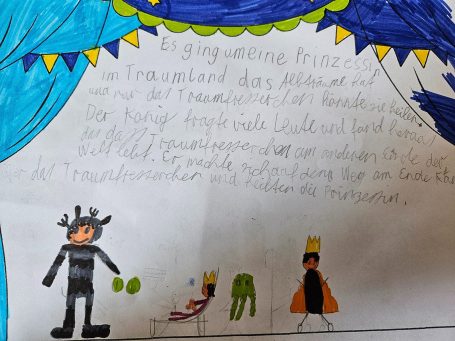 Es ging um eine Prinzessin
im Traumland das Albträume hat
und nur das Traumfresserchen könnte sie heilen.
Der König fragte viele Leute und fand heraus
das das Traumfresserchen am anderen Ende der
Welt lebt. Er machte sich auf denn Weg am Ende kam
er das Traumfresserchen und heilten die Prinzessin.